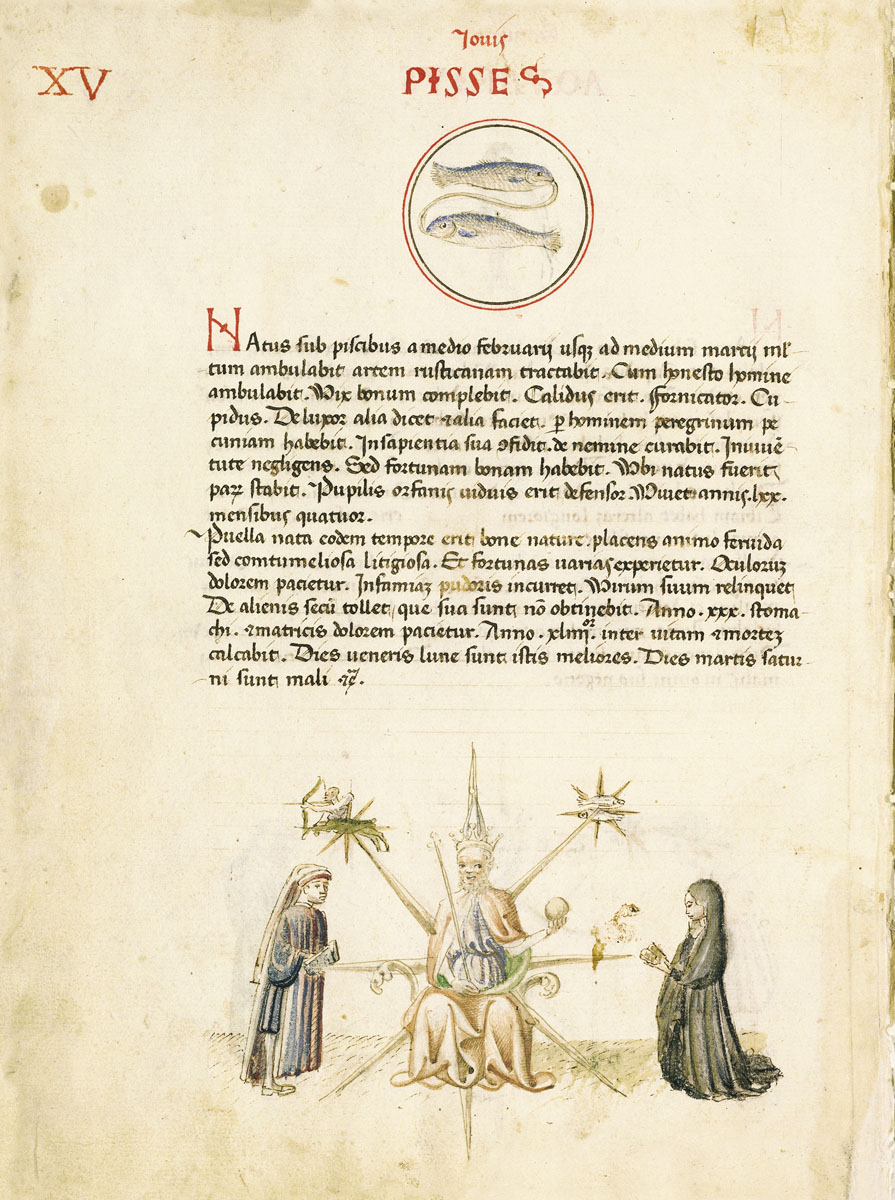 Jouis
XV
PISSES
NAtus sub piscibus a medio februarij usqz ad medium marcij ml̄
tum ambulabit artem rusticanam tractabit. Cum honesto homine
ambulabit. Vix bonum complebit. Calidus erit. fornicator. Cu-
pidus. De luxor alia dicet & alia faciet. ꝑ hominem peregrinum pe
cuniam habebit. In sapientia sua ɔfidit. de nemine curabit. In iuuē-
tute negligens. Sed fortunam bonam habebit. Vbi natus fuerit
parꝝ stabit. Pupilis orfanis uiduis erit defensor. Viuet annis. lxx.
mensibus quatuor.
Puella nata eodem tempore erit bone nature. placens animo feruida
sed comtumeliosa litigiosa. Et fortunas uarias experietur. Oculoruz
dolorem pacietur. Infamiaz pudoris incurret. Virum suum relinquet
De alienis secū tollet, que sua sunt nō obtinebit. Anno. xxx. stoma-
chi. & matricis dolorem pacietur. Anno. xliiij or. inter uitam & mortez
calcabit. Dies ueneris lune sunt istis meliores. Dies martis satur-
ni sunt mali &c̄.